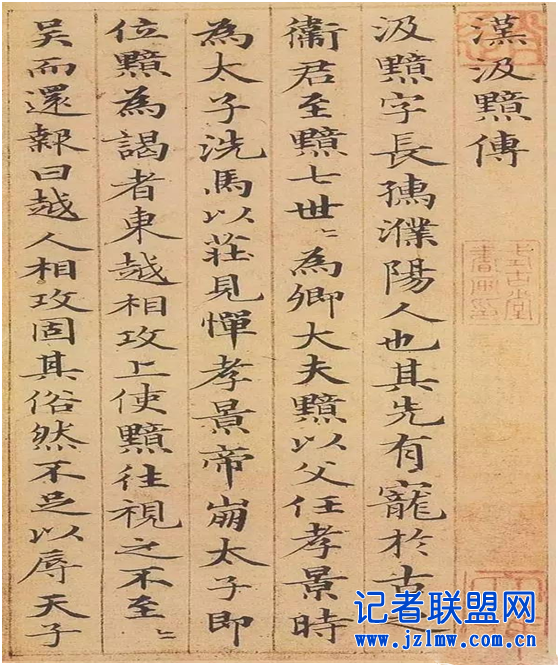 漢汲黯傳
汲黯字長孺濮陽人也其先有寵於古之
衞君至黯七世〻為卿大夫黯以父任孝景時
為太子洗馬以莊見憚孝景帝崩太子即
位黯為謁者東越相攻上使黯往視之不至〻
吳而還報曰越人相攻固其俗然不足以辱天子
记者联盟网
www.jzlmw.com